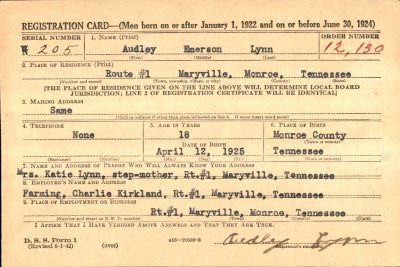 REGISTRATION CARD—(Men born on or after January 1, 1922 and on or before June 30, 1924)
SERIAL NUMBER 1. NAME (Print) ORDER NUMBER
W 205 Audley Emerson Lynn 12,130
(First) (Middle) (Last)
2. PLACE OF RESIDENCE (Print)
Route #1 Maryville, Monroe, Tennessee
(Number and street) (Town, township, village, or city) (County) (State)
[THE PLACE OF RESIDENCE GIVEN ON THE LINE ABOVE WILL DETERMINE LOCAL BOARD
JURISDICTION; LINE 2 OF REGISTRATION CERTIFICATE WILL BE IDENTICAL]
3. MAILING ADDRESS
Same
(Mailing address if other than place indicated on line 2. If same insert word same)
4. TELEPHONE 5. AGE IN YEARS 6. PLACE OF BIRTH
None 18 Monroe County
DATE OF BIRTH (Town or county)
April 12, 1925 Tennessee
(Mo.) (Day) (Yr.) (State or country)
7. NAME AND ADDRESS OF PERSON WHO WILL ALWAYS KNOW YOUR ADDRESS
Mrs. Katie Lynn, step-mother, Rt.#1, Maryville, Tennessee
8. EMPLOYER'S NAME AND ADDRESS
Farming, Charlie Kirkland, Rt.#1, Maryville, Tennessee
9. PLACE OF EMPLOYMENT OR BUSINESS
Rt.#1, Maryville, Monroe, Tennessee
(Number and street or R. F. D. number) (Town) (County) (State)
I AFFIRM THAT I HAVE VERIFIED ABOVE ANSWERS AND THAT THEY ARE TRUE.
D. S. S. Form 1
(Revised 6-1-42) (over) Audley Lynn
(Registrant's signature)